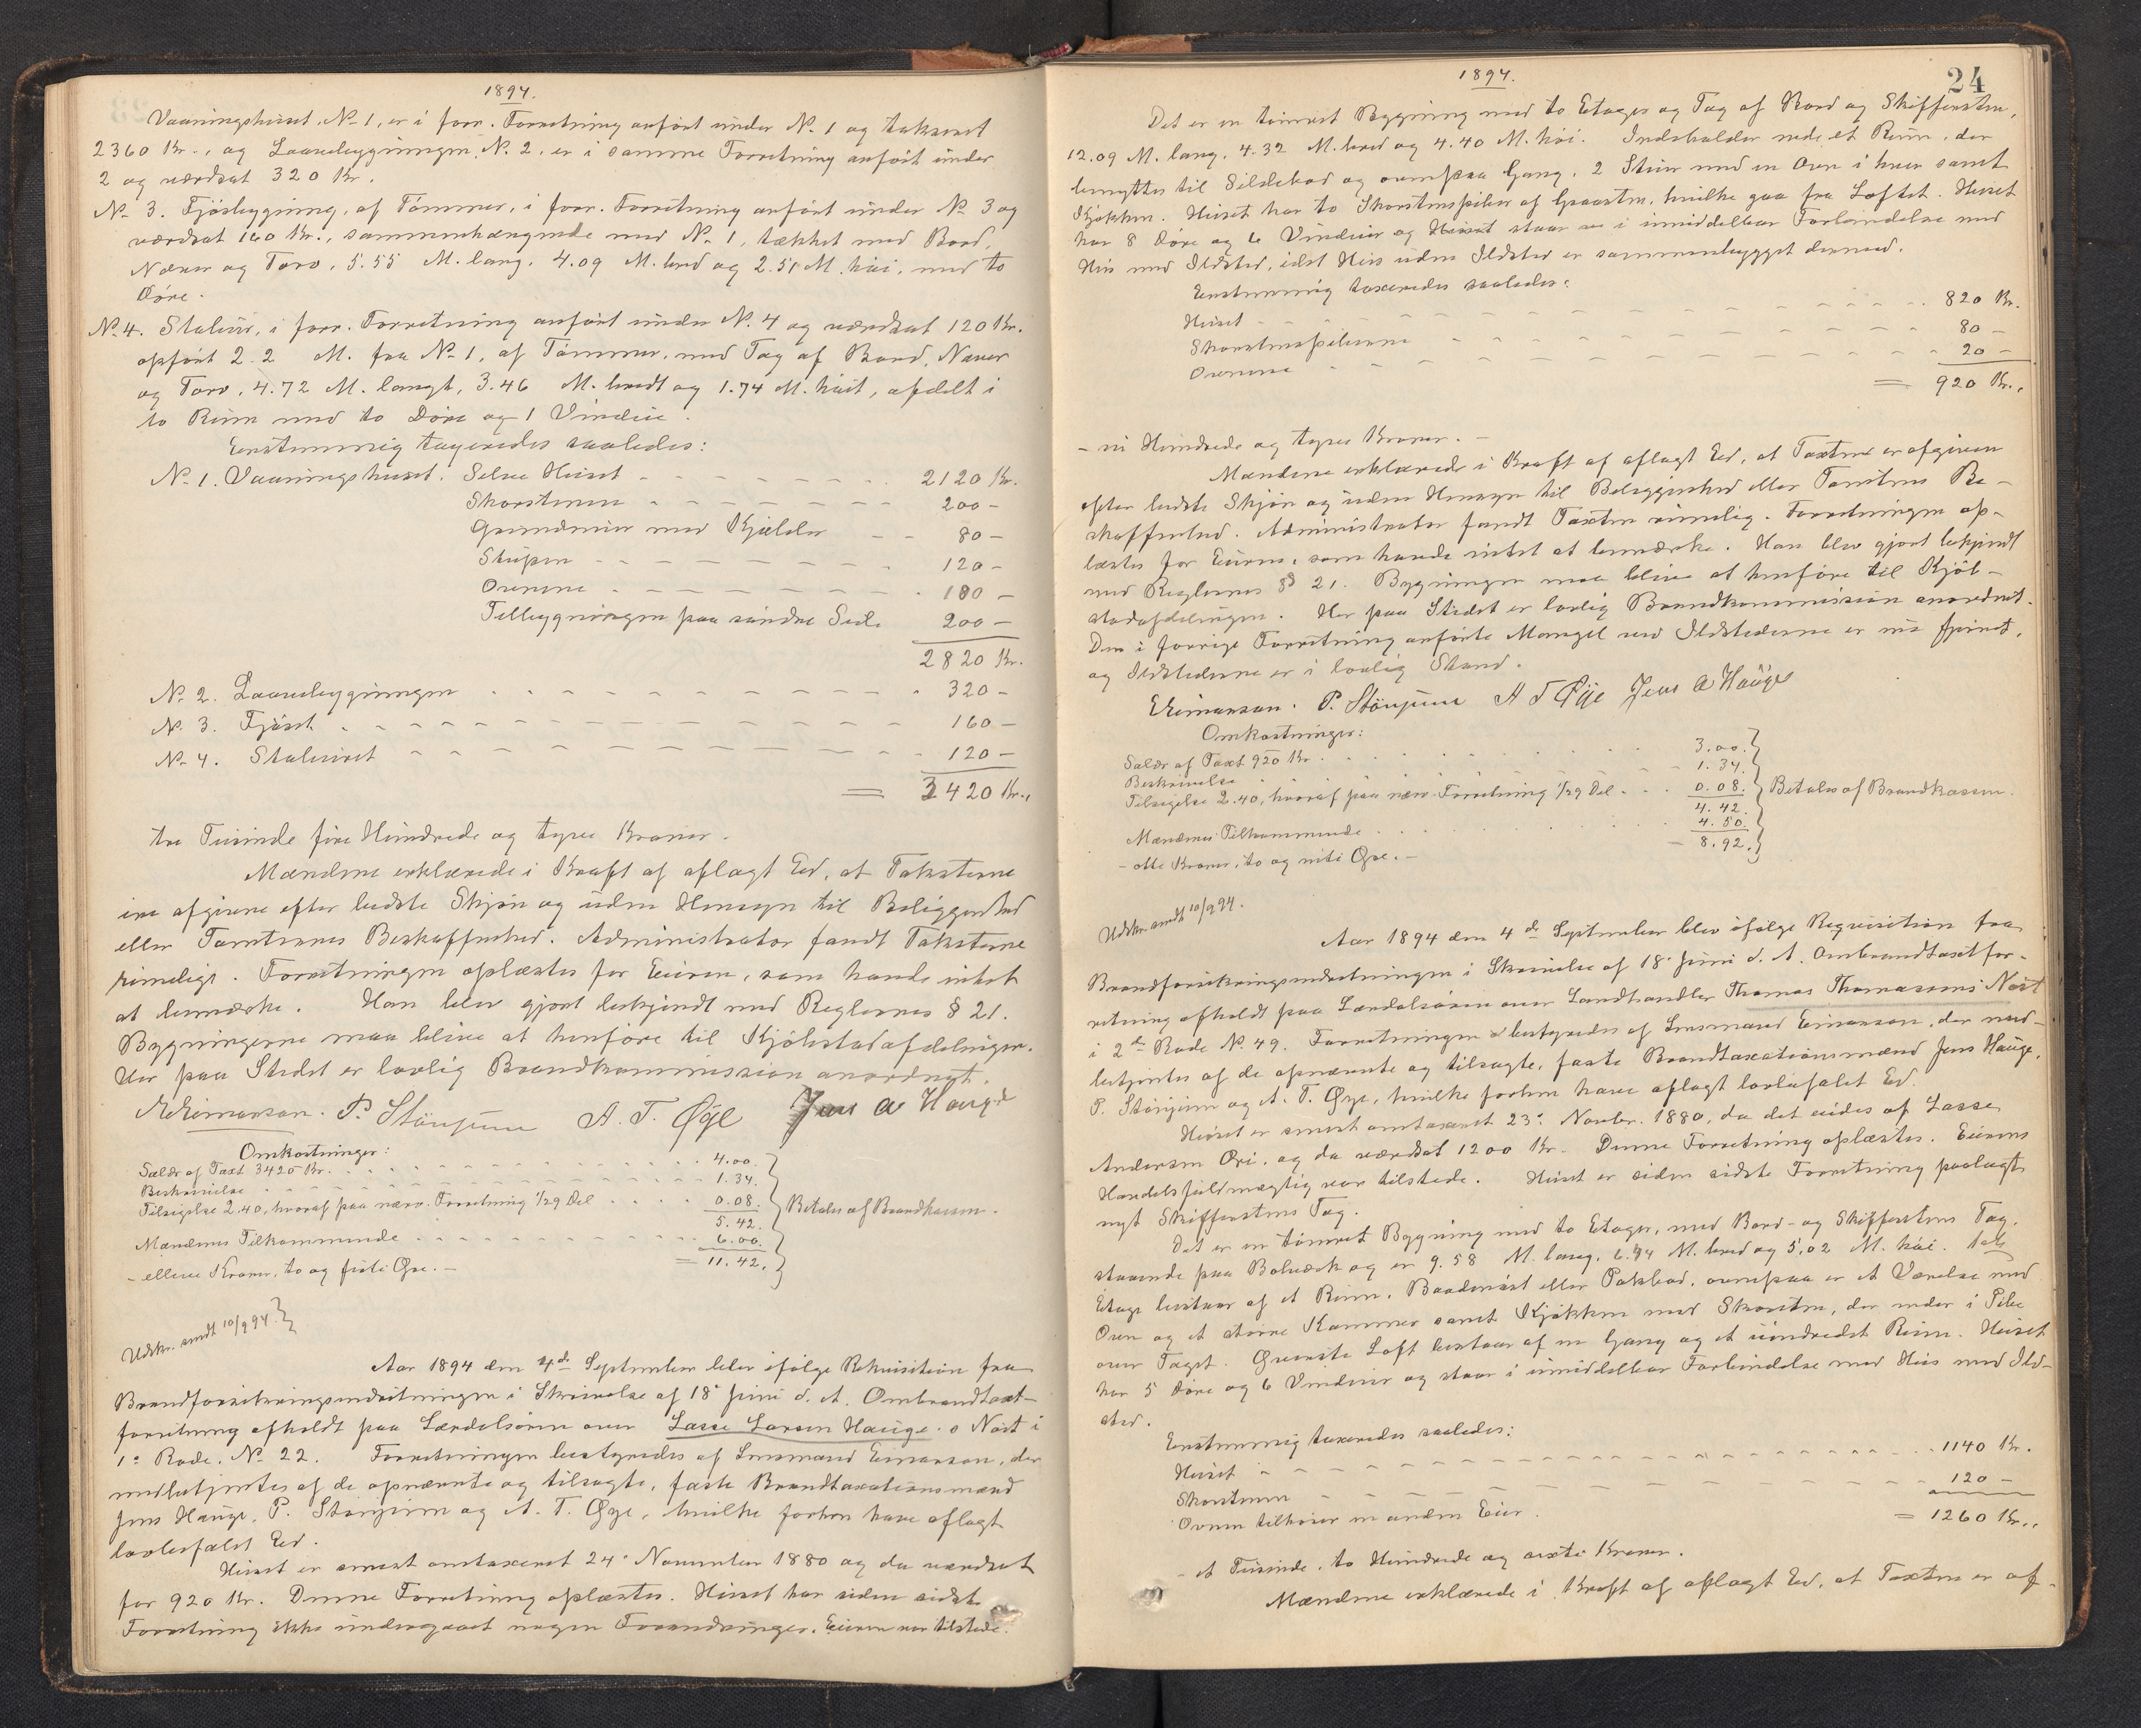 1894.
Vaaningshuset, No 1, er i forr. Forretning anført under No 1 og taksert
2360 Kr., og Laanebygningen, No 2, er i samme Forretning anført under
2 og værdsat 320 Kr.
No 3. Fjøsbygning, af Tømmer, i forr. Forretning anført under No 3 og
værdsat 160 Kr., sammenhængende med No 1, tækket med Bord,
Næver og Torv, 5.55 M. lang, 4.09 M. bred og 2.51 M. høi, med to
Døre.
No 4. Stabur, i forr. Forretning anført under No 4 og værdsat 120 Kr.
opført 2.2 M. fra No 1, af Tømmer, med Tag af Bord, Næver
og Torv, 4.72 M. langt, 3.46 M. bredt og 1.74 M. høit, afdelt i
to Rum med to Døre og 1 Vindue.
Eenstemmig taxeredes saaledes:
No 1. Vaaningshuset. Selve Huset - - - 2120 Kr.
Skorstenen - - - 200 -
Grundmur med Kjelder - - 80 -
Svipen - - - 120 -
Ovnene - - - 100 -
Tilbygningen paa søndre Side 200 -
2820 Kr.
No 2. Laanebygningen - - - 320 -
No 3. Fjøset - - - 160 -
No 4. Staburet - - - 120 -
= 3420 Kr.,
tre Tusinde fire Hundrede og tyve Kroner.
Mændene erklærede i Kraft af aflagt Ed, at Taksterne
ere afgivne efter bedste Skjøn og uden Hensyn til Beliggenhed
eller Tomternes Beskaffenhed. Administrator fandt Taksterne
rimelige. Forretningen oplæstes for Eieren, som havde intet
at bemærke. Han blev gjort bekjendt med Reglernes § 21.
Bygningerne maa blive at henføre til Kjøbstadafdelingen.
Her paa Stedet er lovlig Brandkommission anordnet.
Eimarson. P. Stönjum A. T. Øye Jens A Hauge
Omkostninger:
Salær af Taxt 3420 Kr. . . . 4.00.
Beskrivelse . . . 1.34.
Tilsigelse 2.40, hvoraf paa nærv. Forretning 1/29 Del . . . 0.08. Betales af Brandkassen.
5.42.
Mændenes Tilkommende . . . 6.00.
= 11.42.
- elleve Kroner, to og firti Øre. -
Udskr. sendt 10/9 94.
Aar 1894 den 4de September blev ifølge Rekvisition fra
Brandforsikringsindretningen i Skrivelse af 18 Juni d. A. Ombrandtaxt-
forretning afholdt paa Lærdalsøren over Lasse Larsen Hauges Nøst i
1e Rode, No 22. Forretningen bestyredes af Lensmand Eimarson, der
medbetjentes af de opnævnte og tilsagte, faste Brandtaxationsmænd
Jens Hauge, P. Stönjum og A. T. Øye, hvilke forhen have aflagt
lovbefalet Ed.
Huset er senest omtaxeret 24 November 1880 og da værdsat
for 920 Kr. Denne Forretning oplæstes. Huset har siden sidste
Forretning ikke undergaaet nogen Forandringer. Eieren var tilstede.
1894.
24
Det er en tømret Bygning med to Etager og Tag af Bord og Skiffersten,
12.09 M. lang, 4.32 M. bred og 4.40 M. høi. Indeholder nede et Rum, der
benyttes til Sildebod og ovenpaa Gang, 2 Stuer med en Ovn i hver samt
Kjøkken. Huset har to Skorstenspiber af Graasten, hvilke gaa fra Loftet. Huset
har 8 Døre og 6 Vinduer og staar i umiddelbar Forbindelse med
Hus med Ildsted, idet Hus uden Ildsted er sammenbygget dermed.
Eenstemmig taxeredes saaledes:
Huset - - - 820 Kr.
Skorstenspiberne - - - 80 -
Ovnene - - - 20 -
= 920 Kr.,
- ni Hundrede og tyve Kroner. -
Mændene erklærede i Kraft af aflagt Ed, at Taxten er afgiven
efter bedste Skjøn og uden Hensyn til Beliggenhed eller Tomtens Be-
skaffenhed. Administrator fandt Taxten rimelig. Forretningen op-
læstes for Eieren, som havde intet at bemærke. Han blev gjort bekjendt
med Reglernes § 21. Bygningen maa blive at henføre til Kjøb-
stadafdelingen. Her paa Stedet er lovlig Brandkommission anordnet.
Den i forrige Forretning anførte Mangel ved Ildstederne er nu fjernet,
og Ildstederne er i lovlig Stand.
Eimarson. P. Stönjum A T Øye Jens A Hauge
Omkostninger:
Salær af Taxt 920 Kr. . . . 3.00.
Beskrivelse . . . 1.34.
Tilsigelse 2.40, hvoraf paa nærv. Forretning 1/29 Del . . . 0.08. Betales af Brandkassen.
4.42.
Mændenes Tilkommende . . . 4.50.
- 8.92.
- otte Kroner, to og niti Øre. -
Udskr. sendt 10/9 94.
Aar 1894 den 4de September blev ifølge Requisition fra
Brandforsikringsindretningen i Skrivelse af 18 Juni d. A. Ombrandtaxtfor-
retning afholdt paa Lærdalsøren over Landhandler Thomas Thomassens Nøst
i 2den Rode No 49. Forretningen bestyredes af Lensmand Eimarson, der med-
betjentes af de opnævnte og tilsagte, faste Brandtaxationsmænd Jens Hauge,
P. Stönjum og A. T. Øye, hvilke forhen have aflagt lovbefalet Ed.
Huset er senest omtaxeret 23 Novbr. 1880, da det eiedes af Lasse
Andersen Øri, og da værdsat 1200 Kr. Denne Forretning oplæstes. Eierens
Handelsfuldmægtig var tilstede. Huset er siden sidste Forretning paalagt
nyt Skifferstens Tag.
Det er en tømret Bygning med to Etager, med Bord- og Skifferstens Tag,
staaende paa Bolværk og er 9.58 M. lang, 6.94 M. bred og 5,02 M. høi. 1ste
Etage bestaar af et Rum, Baadenøst eller Pakbod, ovenpaa er et Værelse med
Ovn og et større Kammer samt Kjøkken med Skorsten, der ender i Pibe
over Taget. Øverste Loft bestaar af en Gang og et uindredet Rum. Huset
har 5 Døre og 6 Vinduer og staar i umiddelbar Forbindelse med Hus med Ild-
sted.
Eenstemmig taxeredes saaledes:
Huset - - - 1140 Kr.
Skorstenen - - - 120 -
Ovnen tilhører en anden Eier.
= 1260 Kr.,
- et Tusinde, to Hundrede og sexti Kroner.
Mændene erklærede i Kraft af aflagt Ed, at Taxten er af-